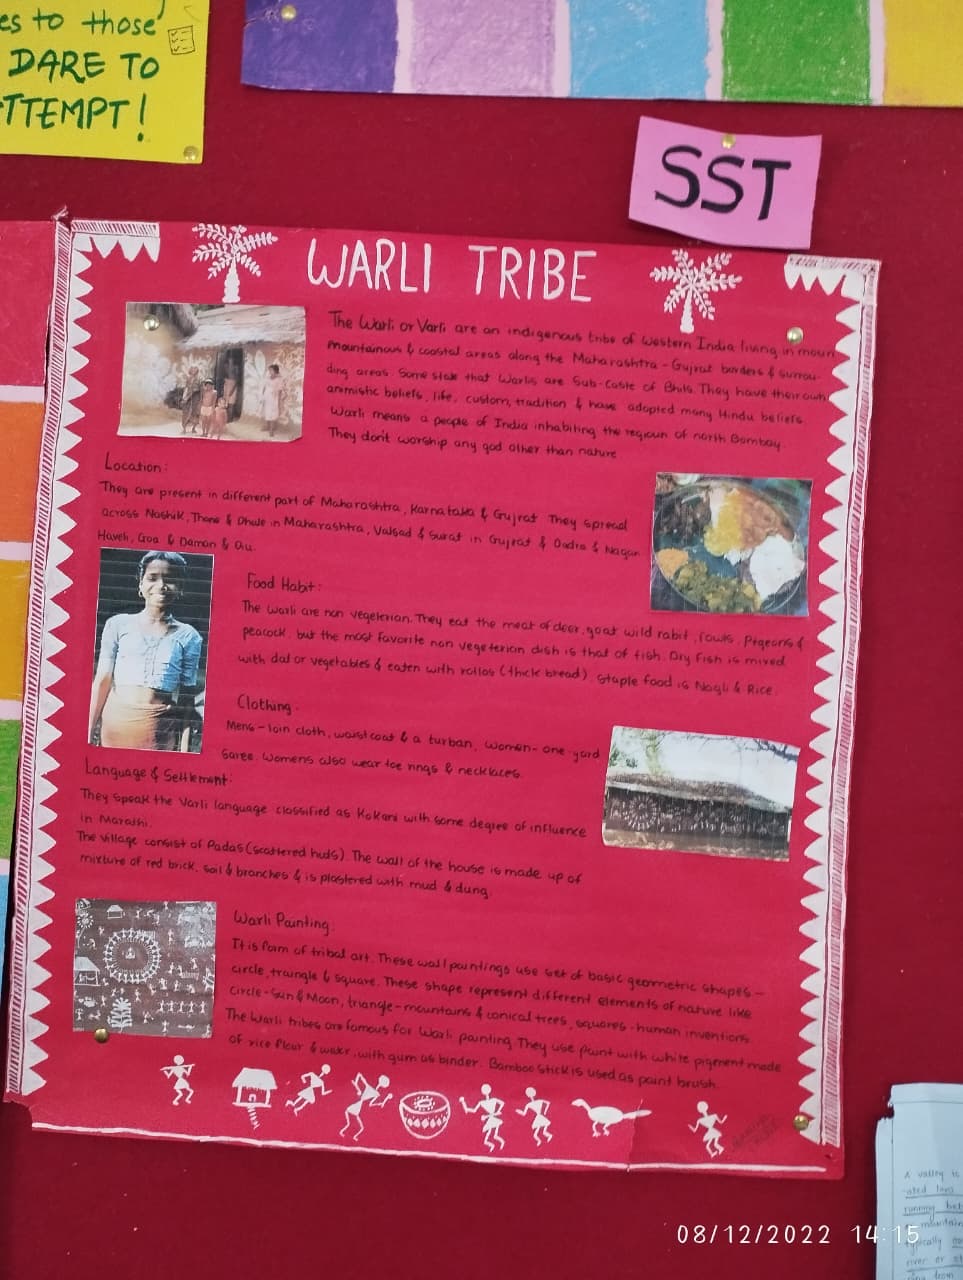 es to those
DARE TO
TTEMPT!
SST
WARLI TRIBE
The Warli or Varli are an indigenous tribe of western India living in moun
mountainous & coastal areas along the Maharashtra-Gujrat borders & surrou-
ding areas. Some state that Warlis are Sub-caste of Bhils. They have their own
animistic beliefs, life, custom, tradition & have adopted many Hindu beliefs.
Warli means a people of India inhabiting the regioun of north Bombay.
They don't worship any god other than nature
Location:
They are present in different part of Maharashtra, Karnataka & Gujrat They spread
across Nashik, Thane & Dhule in Maharashtra, Valsad & Surat in Gujrat & Dadra & Nagar
Haveh, Goa & Daman & Diu.
Food Habit:
The Warli are non vegeterian. They eat the meat of deer, goat wild rabit, fowls, Pigeons &
peacock, but the most favorite non vegeterian dish is that of fish. Dry fish is mixed
with dal or vegetables & eaten with rotlas (thick bread). Staple food is Nagli & Rice.
Clothing.
Mens-loin cloth, waistcoat & a turban, women-one yard
Saree. Womens also wear toe rings & necklaces.
Language & Settlement:
They speak the Varli language classified as Kokani with some degree of influence
in Marathi.
The village consist of Padas (scattered huds). The wall of the house is made up of
mixture of red brick, soil & branches & is plastered with mud & dung.
Warli Painting:
It is form of tribal art. These wall paintings use set of basic geometric shapes-
circle, traingle & square. These shape represent different elements of nature like
circle-Sun & Moon, triangle-mountains & conical trees, squares-human inventions.
The Warli tribes are famous for Warli painting. They use paint with white pigement made
of rice flour & water, with gum as binder. Bamboo stick is used as paint brush.
A valley is
-ated land
running bet
mountain
typically
river or
from
08/12/2022 14:15